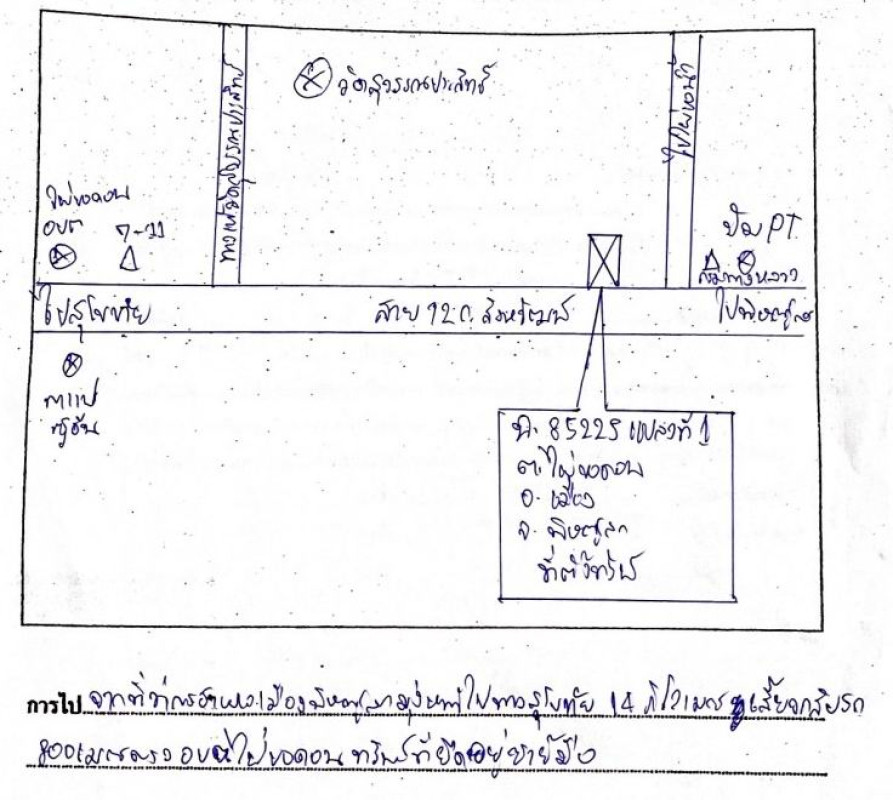 วัดสุวรรณประสิทธิ์
ทางเข้าวัดสุวรรณประสิทธิ์
ไปไผ่ขอน้ำ
ไผ่ขอดอน
อบต 7-11
ปั๊ม PT
ไปสุโขทัย
สาย 12 ถ. สิงหวัฒน์
ไปพิษณุโลก
น. 85225 แปลงที่ 1
ต. ไผ่ขอดอน
อ. เมือง
จ. พิษณุโลก
ที่ตั้งทรัพย์
การไป จากที่ทำการอำเภอเมืองพิษณุโลกมุ่งหน้าไปทางสุโขทัย 14 กิโลเมตร เลี้ยวกลับรถ
800 เมตรตรง อบต ไผ่ขอดอน ทรัพย์ที่ยึดอยู่ซ้ายมือ